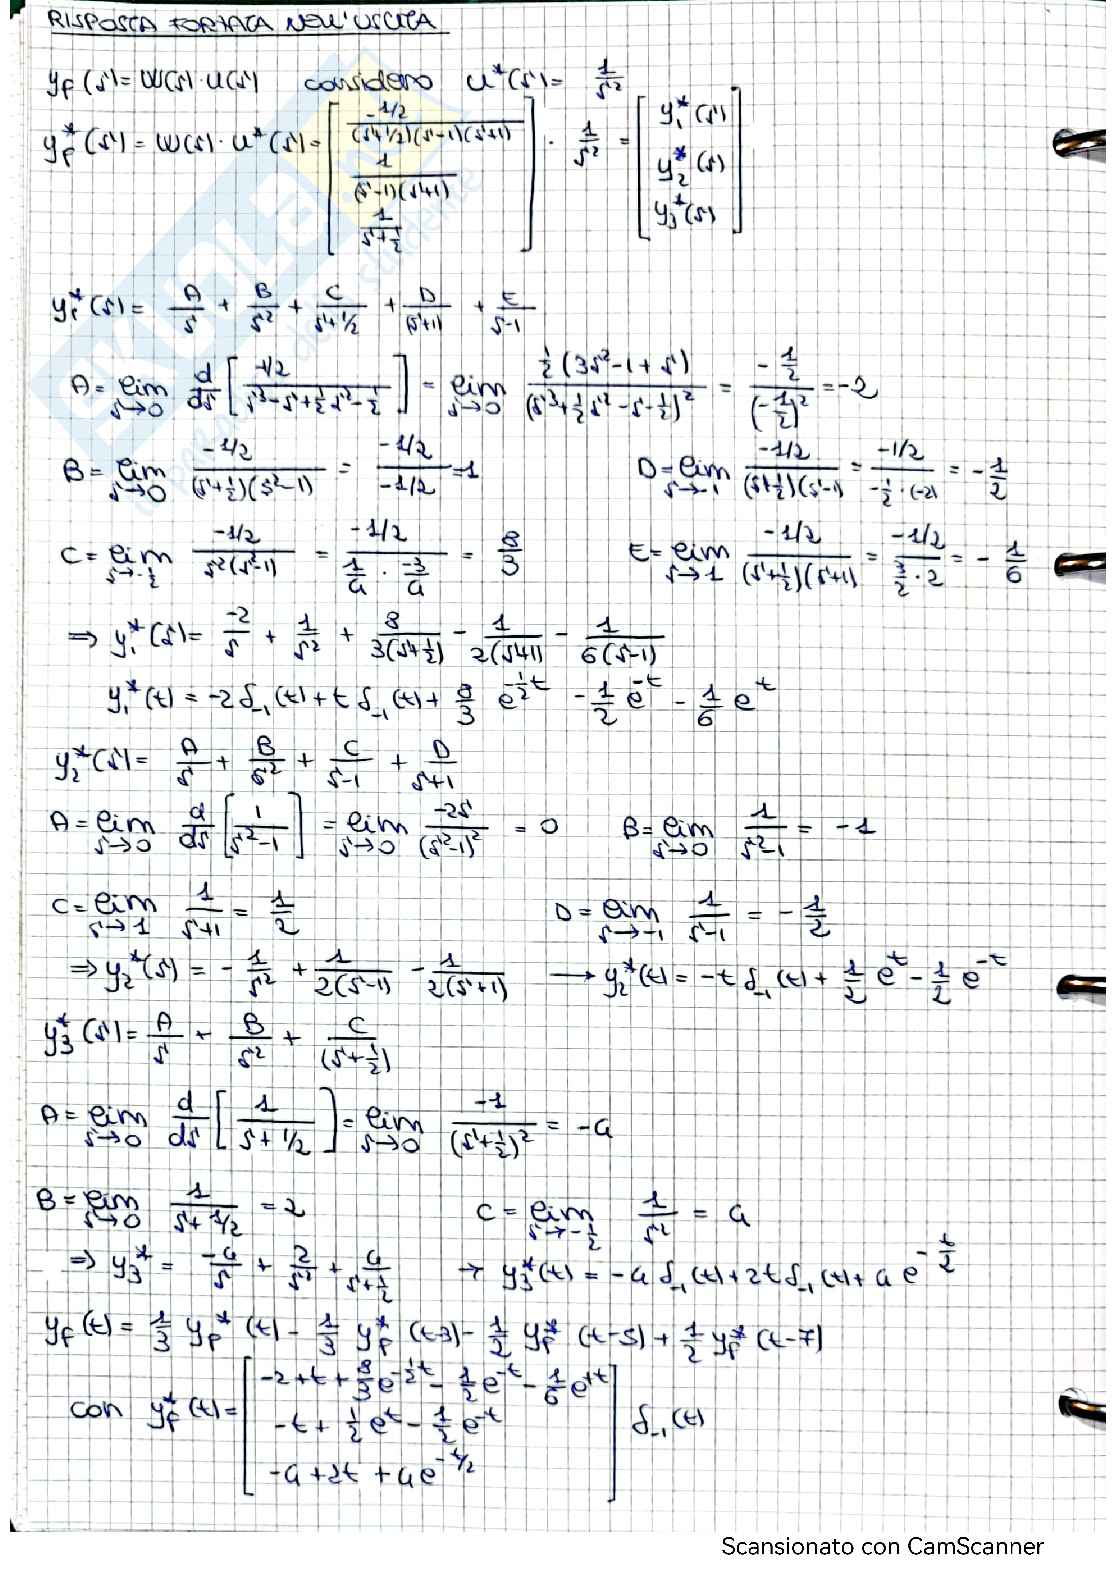 RISPOSTA FORZATA NELL'USCITA
y_f(s) = W(s)·U(s) considero u*(s) = 1/s²
y_f*(s) = W(s)·u*(s) = [ (-1/2)/((s+1/2)(s-1)(s+1)) ; 1/((s-1)(s+1)) ; 1/(s+1/2) ] · 1/s² = [ y_1*(s) ; y_2*(s) ; y_3*(s) ]
y_1*(s) = A/s + B/s² + C/(s+1/2) + D/(s+1) + E/(s-1)
A = lim s→0 d/ds [ (-1/2)/(s³-s+1/2 s²-1/2) ] = lim s→0 (1/2(3s²-1+s))/(s³+1/2 s²-s-1/2)² = (-1/2)/(-1/2)² = -2
B = lim s→0 (-1/2)/((s+1/2)(s²-1)) = (-1/2)/(-1/2) = 1 D = lim s→-1 (-1/2)/((s+1/2)(s-1)) = (-1/2)/(-1/2·(-2)) = -1/2
C = lim s→-1/2 (-1/2)/(s²(s²-1)) = (-1/2)/(1/4 · -3/4) = 8/3 E = lim s→1 (-1/2)/((s+1/2)(s+1)) = (-1/2)/(3/2·2) = -1/6
⇒ y_1*(s) = -2/s + 1/s² + 8/(3(s+1/2)) - 1/(2(s+1)) - 1/(6(s-1))
y_1*(t) = -2δ_-1(t) + t δ_-1(t) + 8/3 e^(-1/2 t) - 1/2 e^(-t) - 1/6 e^t
y_2*(s) = A/s + B/s² + C/(s-1) + D/(s+1)
A = lim s→0 d/ds [ 1/(s²-1) ] = lim s→0 (-2s)/(s²-1)² = 0 B = lim s→0 1/(s²-1) = -1
C = lim s→1 1/(s+1) = 1/2 D = lim s→-1 1/(s-1) = -1/2
⇒ y_2*(s) = -1/s² + 1/(2(s-1)) - 1/(2(s+1)) → y_2*(t) = -t δ_-1(t) + 1/2 e^t - 1/2 e^(-t)
y_3*(s) = A/s + B/s² + C/(s+1/2)
A = lim s→0 d/ds [ 1/(s+1/2) ] = lim s→0 -1/(s+1/2)² = -4
B = lim s→0 1/(s+1/2) = 2 C = lim s→-1/2 1/s² = 4
⇒ y_3* = -4/s + 2/s² + 4/(s+1/2) → y_3*(t) = -4 δ_-1(t) + 2t δ_-1(t) + 4 e^(-t/2)
y_f(t) = 1/3 y_f*(t) - 1/3 y_f*(t-3) - 1/2 y_f*(t-5) + 1/2 y_f*(t-7)
con y_f*(t) = [ -2+t+8/3 e^(-1/2 t) - 1/2 e^(-t) - 1/6 e^(+t) ; -t + 1/2 e^t - 1/2 e^(-t) ; -4+2t+4e^(-t/2) ] δ_-1(t)
Scansionato con CamScanner